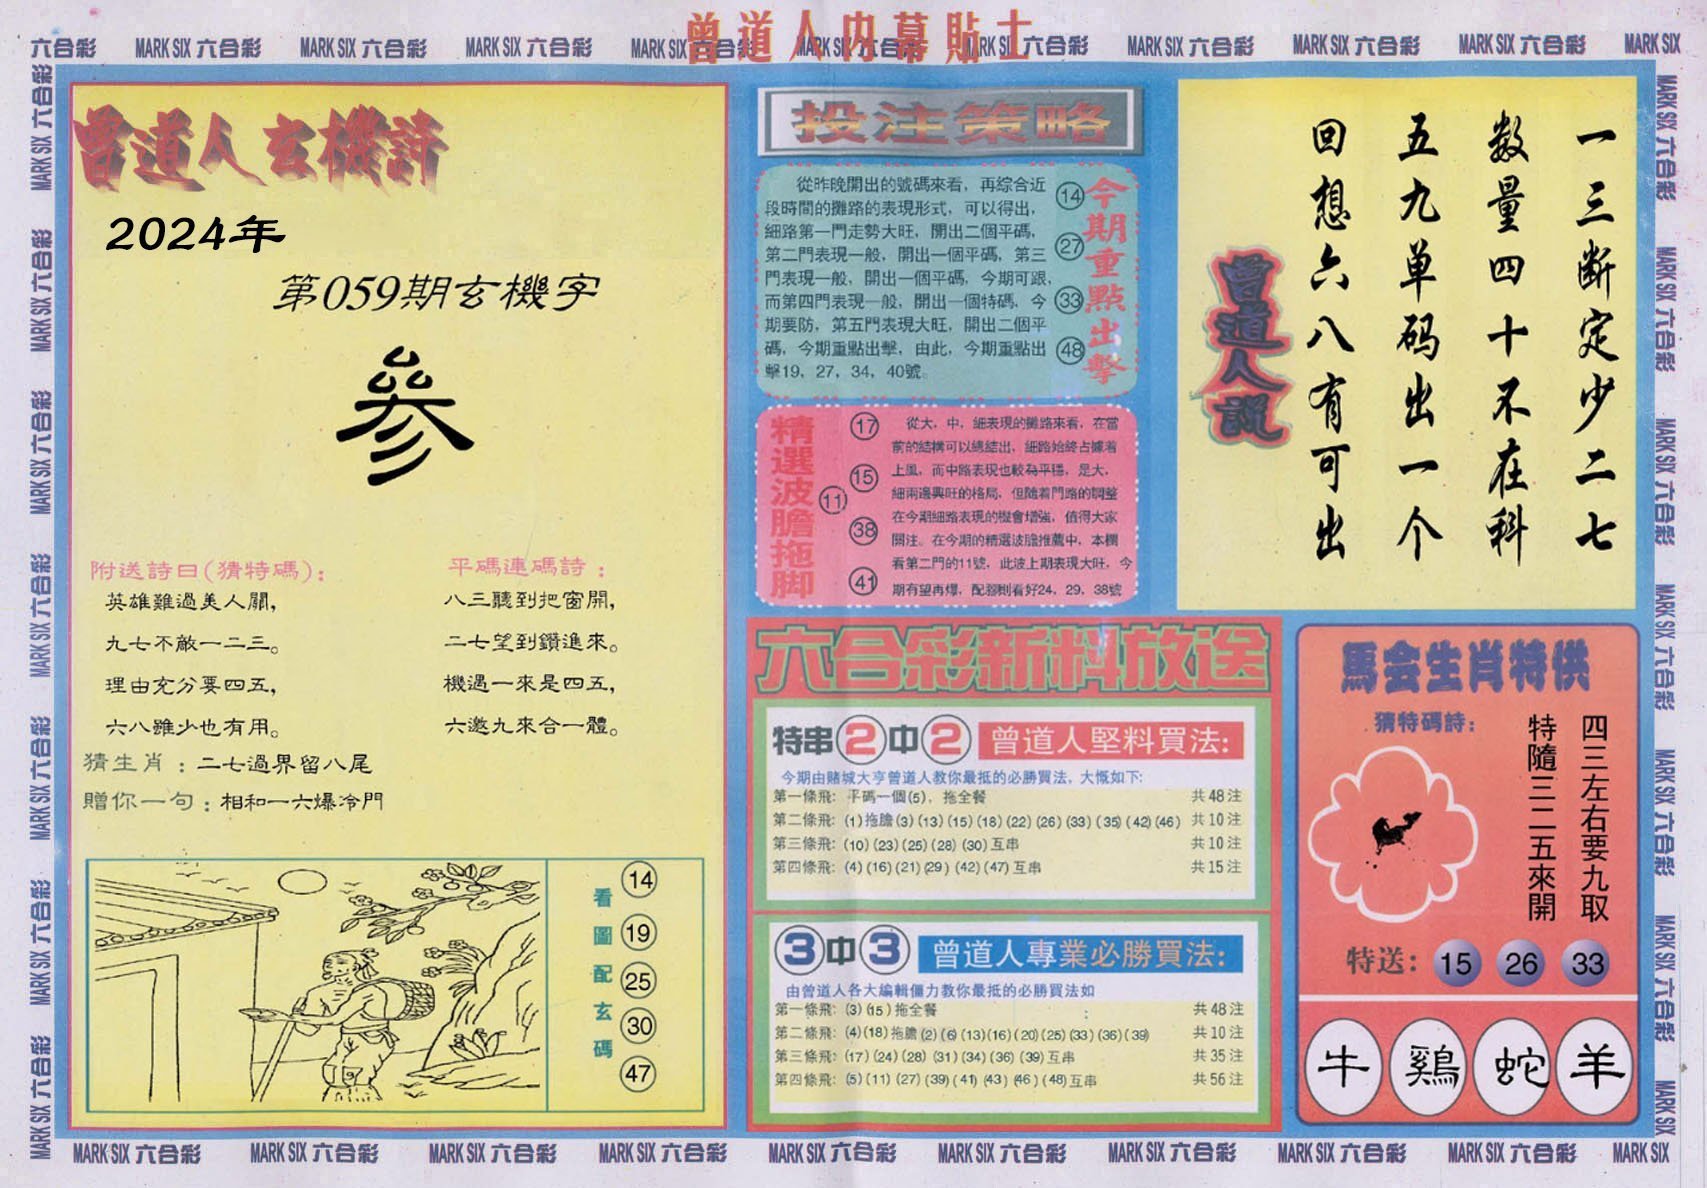 曾道人内幕貼士
六合彩 MARK SIX 六合彩 MARK SIX 六合彩 MARK SIX 六合彩 MARK SIX 六合彩 MARK SIX 六合彩 MARK SIX 六合彩 MARK SIX 六合彩 MARK SIX 六合彩 MARK SIX
曾道人玄機詩
2024年
第059期玄機字
參
附送詩曰(猜特碼):
英雄難過美人關,
九七不敵一二三。
理由充分要四五,
六八雖少也有用。
平碼連碼詩:
八三聽到把窗開,
二七望到鑽進來。
機遇一來是四五,
六邀九來合一體。
猜生肖:二七過界留八尾
贈你一句:相和一六爆冷門
看圖配玄碼
14
19
25
30
47
投注策略
從昨晚開出的號碼來看，再綜合近
段時間的攤路的表現形式，可以得出，
細路第一門走勢大旺，開出二個平碼，
第二門表現一般，開出一個平碼，第三
門表現一般，開出一個平碼，今期可跟，
而第四門表現一般，開出一個特碼，今
期要防，第五門表現大旺，開出二個平
碼，今期重點出擊，由此，今期重點出
擊19，27，34，40號。
14
27
33
48
今期重點出擊
精選波膽拖脚
17
15
11
38
41
從大，中，細表現的攤路來看，在當
前的結構可以總結出，細路始終占據着
上風，而中路表現也較為平穩，是大，
細兩邊興旺的格局，但隨着門路的調整
在今期細路表現的機會增強，值得大家
關注。在今期的精選波膽推薦中，本欄
看第二門的11號，此波上期表現大旺，今
期有望再爆，配腳則看好24，29，38號
曾道人說
一三断定少二七
数量四十不在科
五九单码出一个
回想六八有可出
六合彩新料放送
特串2中2 曾道人堅料買法:
今期由賭城大亨曾道人教你最抵的必勝買法，大慨如下:
第一條飛: 平碼一個(5)，拖全餐 共48注
第二條飛: (1)拖膽(3)(13)(15)(18)(22)(26)(33)(35)(42)(46) 共10注
第三條飛: (10)(23)(25)(28)(30)互串 共10注
第四條飛: (4)(16)(21)(29)(42)(47)互串 共15注
3中3 曾道人專業必勝買法:
由曾道人各大編輯僵力教你最抵的必勝買法如
第一條飛: (3)(15)拖全餐 共48注
第二條飛: (4)(18)拖膽(2)(6)(13)(16)(20)(25)(33)(36)(39) 共10注
第三條飛: (17)(24)(28)(31)(34)(36)(39)互串 共35注
第四條飛: (5)(11)(27)(39)(41)(43)(46)(48)互串 共56注
馬会生肖特供
猜特碼詩:
四三左右要九取
特隨三二五來開
特送: 15 26 33
牛 鷄 蛇 羊
MARK SIX 六合彩 MARK SIX 六合彩 MARK SIX 六合彩 MARK SIX 六合彩 MARK SIX 六合彩 MARK SIX 六合彩 MARK SIX 六合彩 MARK SIX 六合彩 MARK SIX 六合彩 MARK SIX
MARK SIX 六合彩
MARK SIX 六合彩
MARK SIX 六合彩
MARK SIX 六合彩
MARK SIX 六合彩
MARK SIX 六合彩
MARK SIX 六合彩
MARK SIX 六合彩
MARK SIX 六合彩
MARK SIX 六合彩
MARK SIX 六合彩
MARK SIX 六合彩
MARK SIX 六合彩
MARK SIX